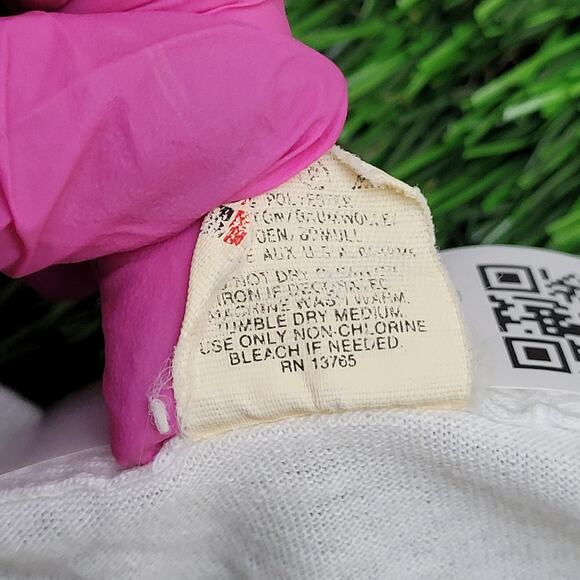 POLYESTER
AUX U.S.A.
NOT DRY CLEAN OR
IRON IF DECORATED.
MACHINE WASH WARM.
TUMBLE DRY MEDIUM.
USE ONLY NON-CHLORINE
BLEACH IF NEEDED.
RN 13765